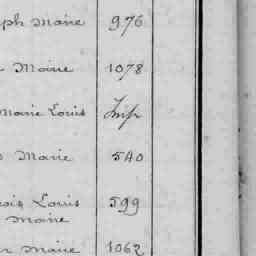 ph Marie 976
Marie 1078
Marie Louis Imp
Marie 540
ois Louis 599
Marie
Marie 1062